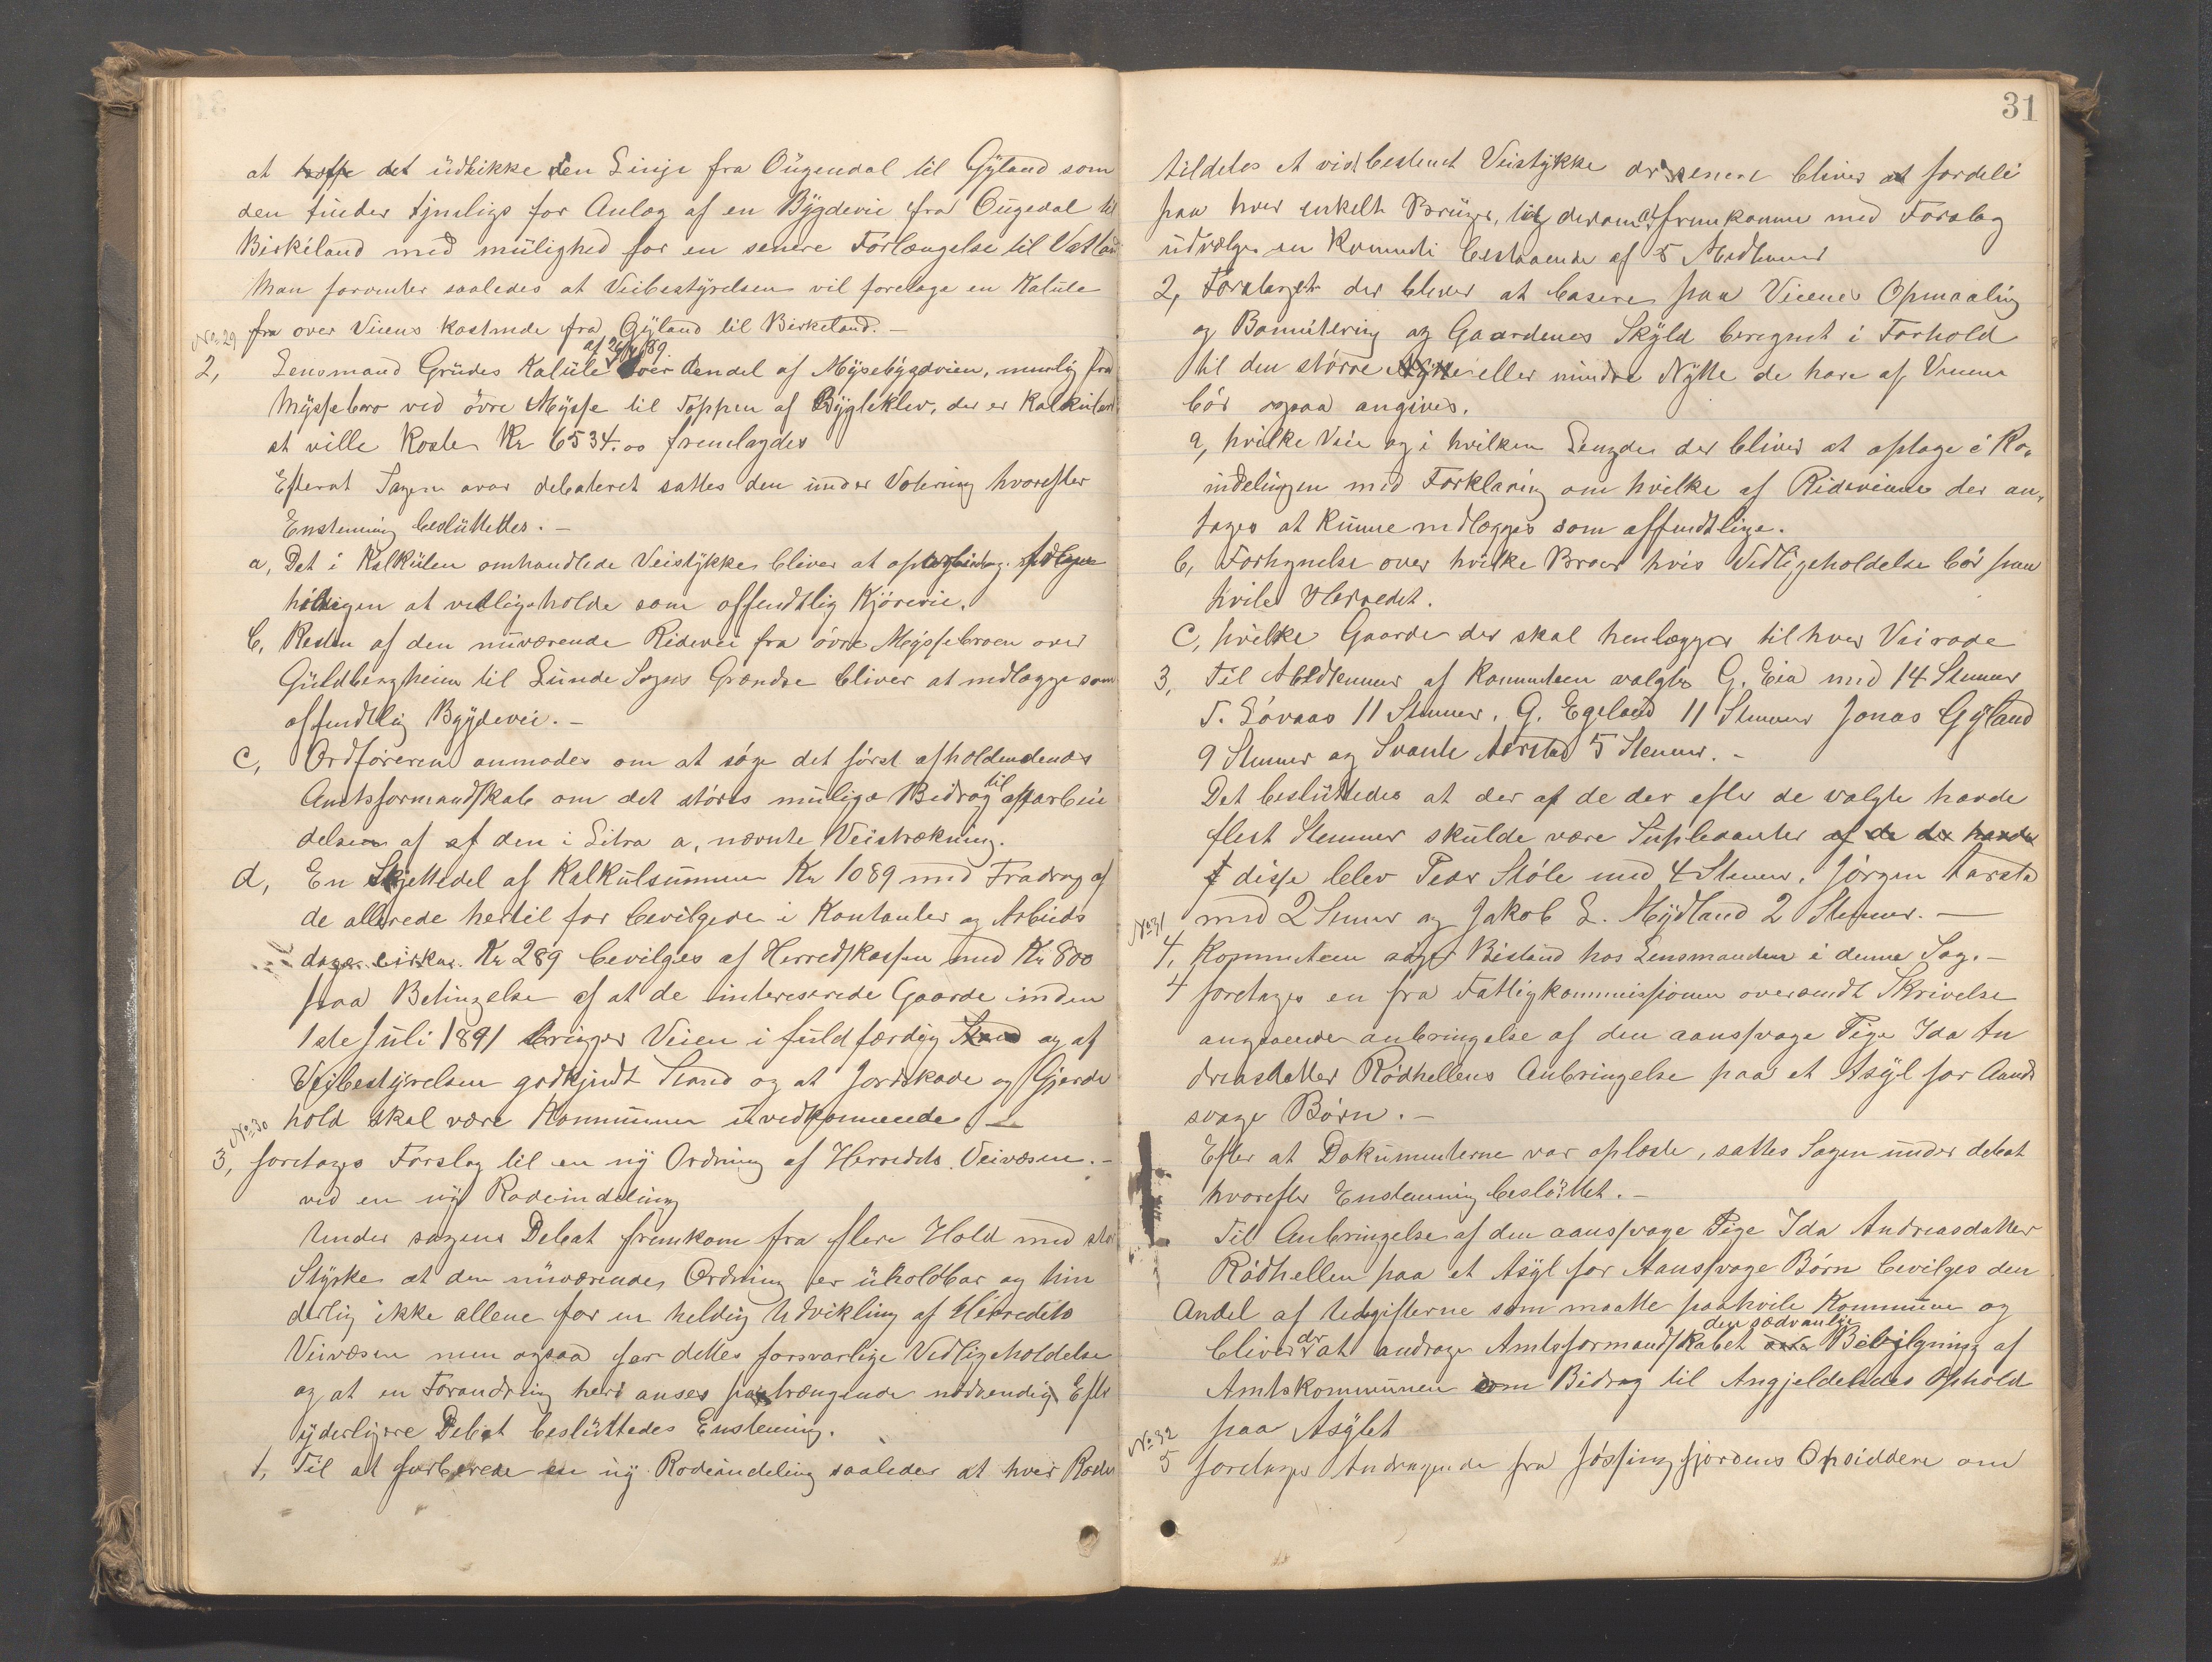 at det udstikke den Linje fra Ougendal til Gyland som
den finder tjenligst for Anlæg af en Bygdevei fra Ougedal til
Birkeland med mulighed for en senere Forlængelse til Vatland
Man forventer saaledes at Veibestyrelsen vil foretage en Kalule
fra over Veiens Kostende fra Gyland til Birkeland. —
No 29
2, Lensmand Grudes Kalule af 26/4 89 over Rendel af Mysebygdveien, nemlig fra
Myssebro ved øvre Mysse til Toppen af Bygleklev, der er Kalkuleret
at ville Koste Kr 6534.00 fremlagdes
Efterat Sagen var debateret sattes den under Votering hvorefter
Enstemmig besluttedes. —
a, Det i Kalkulen omhandlede Veistykke bliver at
at vedligeholde som offendtlig Kjørevei.
b, Resten af den nuværende Ridevei fra øvre Myssebroen over
Guldbergheien til Lunde Sogns Grændse bliver at nedlægge som
offendtlig Bygdevei. —
c, Ordføreren anmodes om at søge det først afholdendende
Amtsformandskab om det størst mulige Bidrag til oparbei
delsen af af den i Litra a, nævnte Veistrækning.
d, En Skjettedel af Kalkulsummen Kr 1089 med Fradrag af
de allerede hertil for bevilgede i Kontanter og Arbeids
dage cirka Kr 289 bevilges af Herredskassen med Kr 800
paa Betingelse af at de interesserede Gaarde inden
1ste Juli 1891 bringer Veien i fuldfærdig Stand og af
Veibestyrelsen godkjendt Stand og at Jordskade og Gjerde
hold skal være Kommunen uvedkommende. —
No 30
3, foretages Forslag til en ny Ordning af Herredets Veivæsen. —
ved en ny Rodeinddeling
Under sagens Debat fremkom fra flere Hold med stor
Styrke at den nuværende Ordning er uholdbar og hin
derlig ikke allene for en heldig Udvikling af Herredets
Veivæsen men ogsaa for dettes forsvarlige Vedligeholdelse
og at en Forandring heri anses paatrængende nødvendig Efter
yderligere Debat besluttedes Enstemmig.
1, Til at forberede en ny Rodeinddeling saaledes at hver Rode
31
tildeles et vist bestemt Veistykke der senere bliver at fordele
paa hver enkelt Bruger, til derom at fremkomme med Forslag
udvælges en Kommite bestaaende af 5 Medlemmer
2, Forslaget der bliver at basere paa Veienes Opmaaling
og Bonnitering og Gaardenes Skyld beregnet i Forhold
til den større Nytte eller mindre Nytte de have af Veiene
bør ogsaa angives.
a, hvilke Veie og i hvilken Længde der bliver at optage i Ro,
inddelingen med Forklaring om hvilke af Rideveiene der an,
tages at kunne nedlægges som offendtlige.
b, Fortegnelse over hvilke Broer hvis Vedligeholdelse bør paa
hvile Herredet.
C, hvilke Gaarde der skal henlægges til hver Veirode
3, Til Medlemmer af Kommiteen valgtes G. Eia med 14 Stemmer
T. Løvaas 11 Stemmer, G. Egeland 11 Stemmer Jonas Gyland
9 Stemmer og Svante Aarstad 5 Stemmer. —
Det besluttedes at der af de der efter de valgte havde
flest Stemmer skulde være Supleanter af de der havde
disse blev Peder Støle med 4 Stemmer, Jørgen Aarstad
med 2 Stemmer og Jakob L. Mydland 2 Stemmer. —
No 31
4, Kommiteen søger Bistand hos Lensmanden i denne Sag. —
4 foretages en fra Fattigkommissionen oversendt Skrivelse
angaaende anbringelse af den aanssvage Pige Ida An
dreasdatter Rødhellens Anbringelse paa et Asyl for Aands
svage Børn. —
Efter at Dokumenterne var oplæste, sattes Sagen under debat
hvorefter Enstemmig besluttet. —
Til Anbringelse af den aanssvage Pige Ida Andreasdatter
Rødhellen paa et Asyl for Aanssvage Børn bevilges den
Andel af Udgifterne som maatte paahvile Kommunen og
bliver der at andrage Amtsformandskabet den sædvanlige Bevilgning af
Amtskommunen som Bidrag til Angjeldendes Ophold
paa Asylet
No 32
5 foretages Andragende fra Jøssingfjordens Opsiddere om